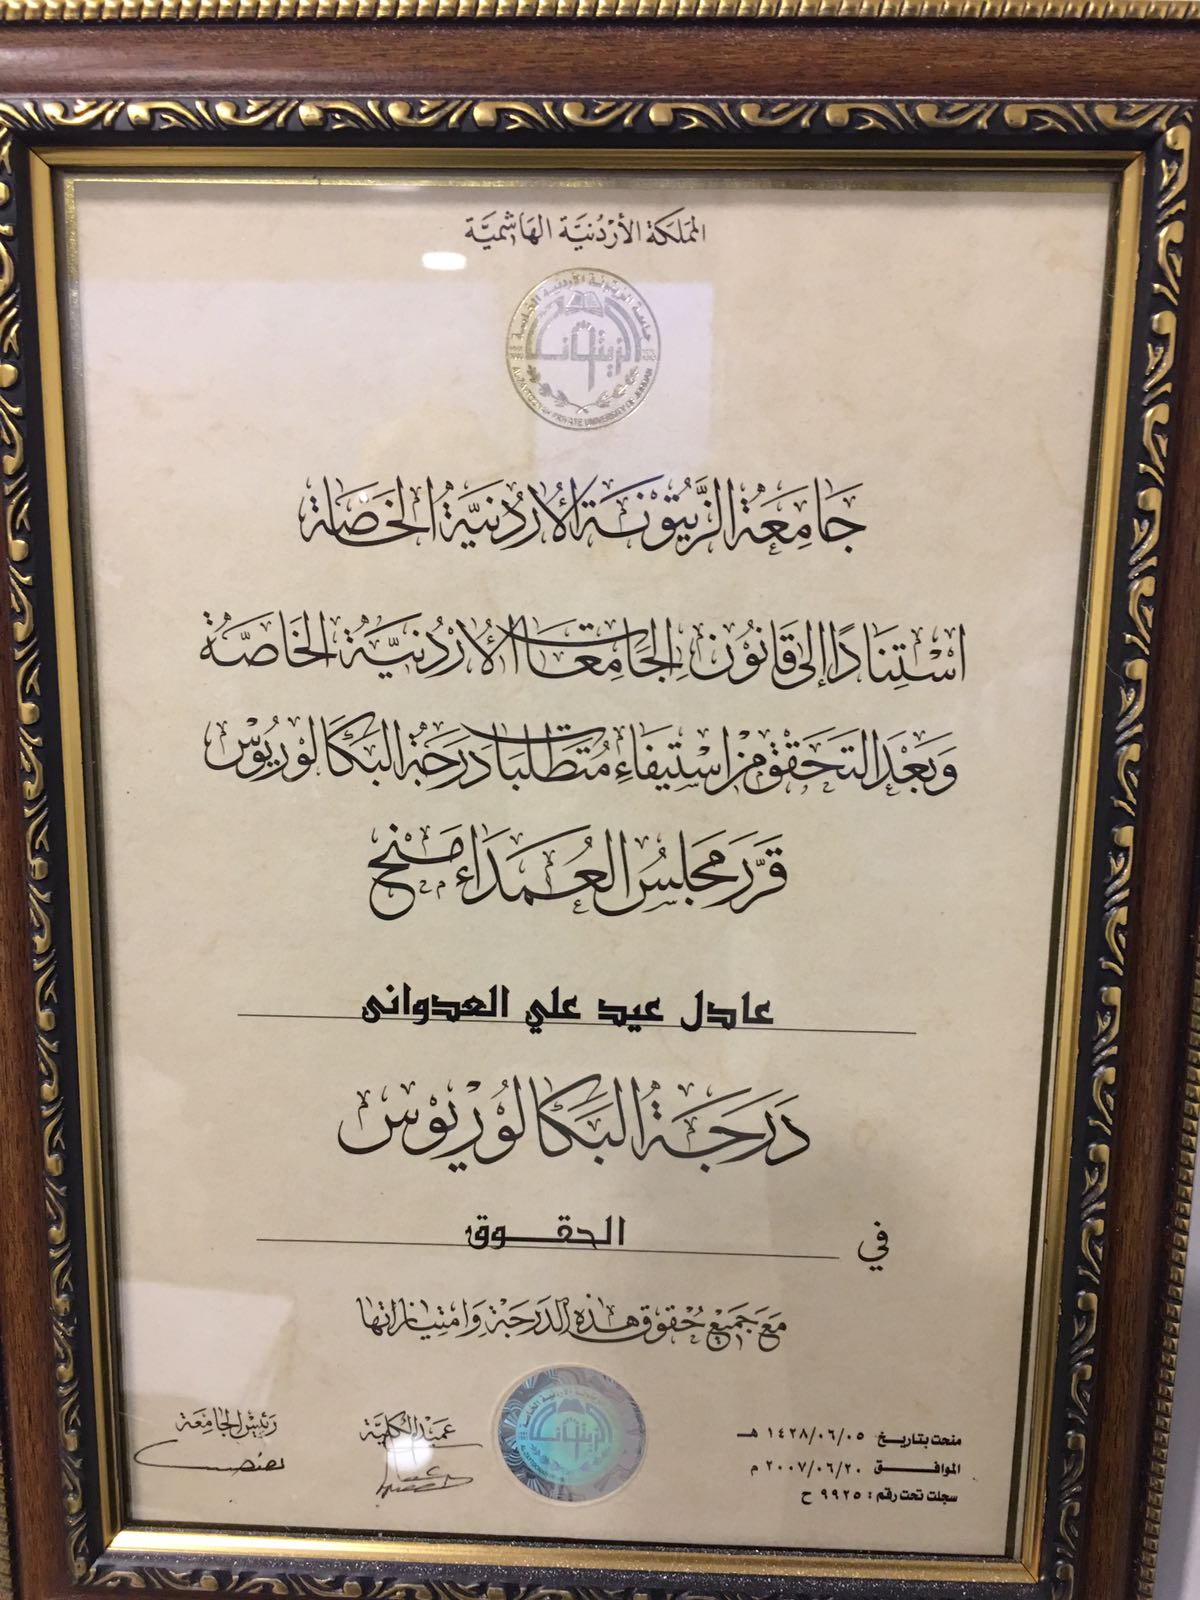 المملكة الأردنية الهاشمية
جامعة الزيتونة الأردنية الخاصة
الزيتونة
AL-ZAYTOONAH PRIVATE UNIVERSITY OF JORDAN
جَامِعَةُ الزَّيْتُوْنَةِ الأُرْدُنِيَّةِ الخَاصَّة
اسْتِنَادًا إلى قَانُوْنِ الجَامِعَاتِ الأُرْدُنِيَّةِ الخَاصَّةِ
وَبَعْدَ التَحَقُّقِ مِنْ اسْتِيفَاءِ مُتَطَلَّبَاتِ دَرَجَةِ البَكَالُورِيُوْسِ
قَرَّرَ مَجْلِسُ العُمَدَاءِ مَنْحَ
عادل عيد علي العدوانى
دَرَجَةَ البَكَالُوْرِيُوْسِ
في الحقـــوق
مَعَ جَمِيْعِ حُقُوْقِ هٰذِهِ الدَرَجَةِ وَامْتِيَازَاتِهَا
منحت بتاريخ ١٤٢٨/٠٦/٠٥ هـ
الموافـــق ٢٠٠٧/٠٦/٢٠ م
سجلت تحت رقم : ٩٩٢٥ ح
عَمِيْدُ الكُلِّيَّةِ
رَئِيْسُ الجَامِعَةِ